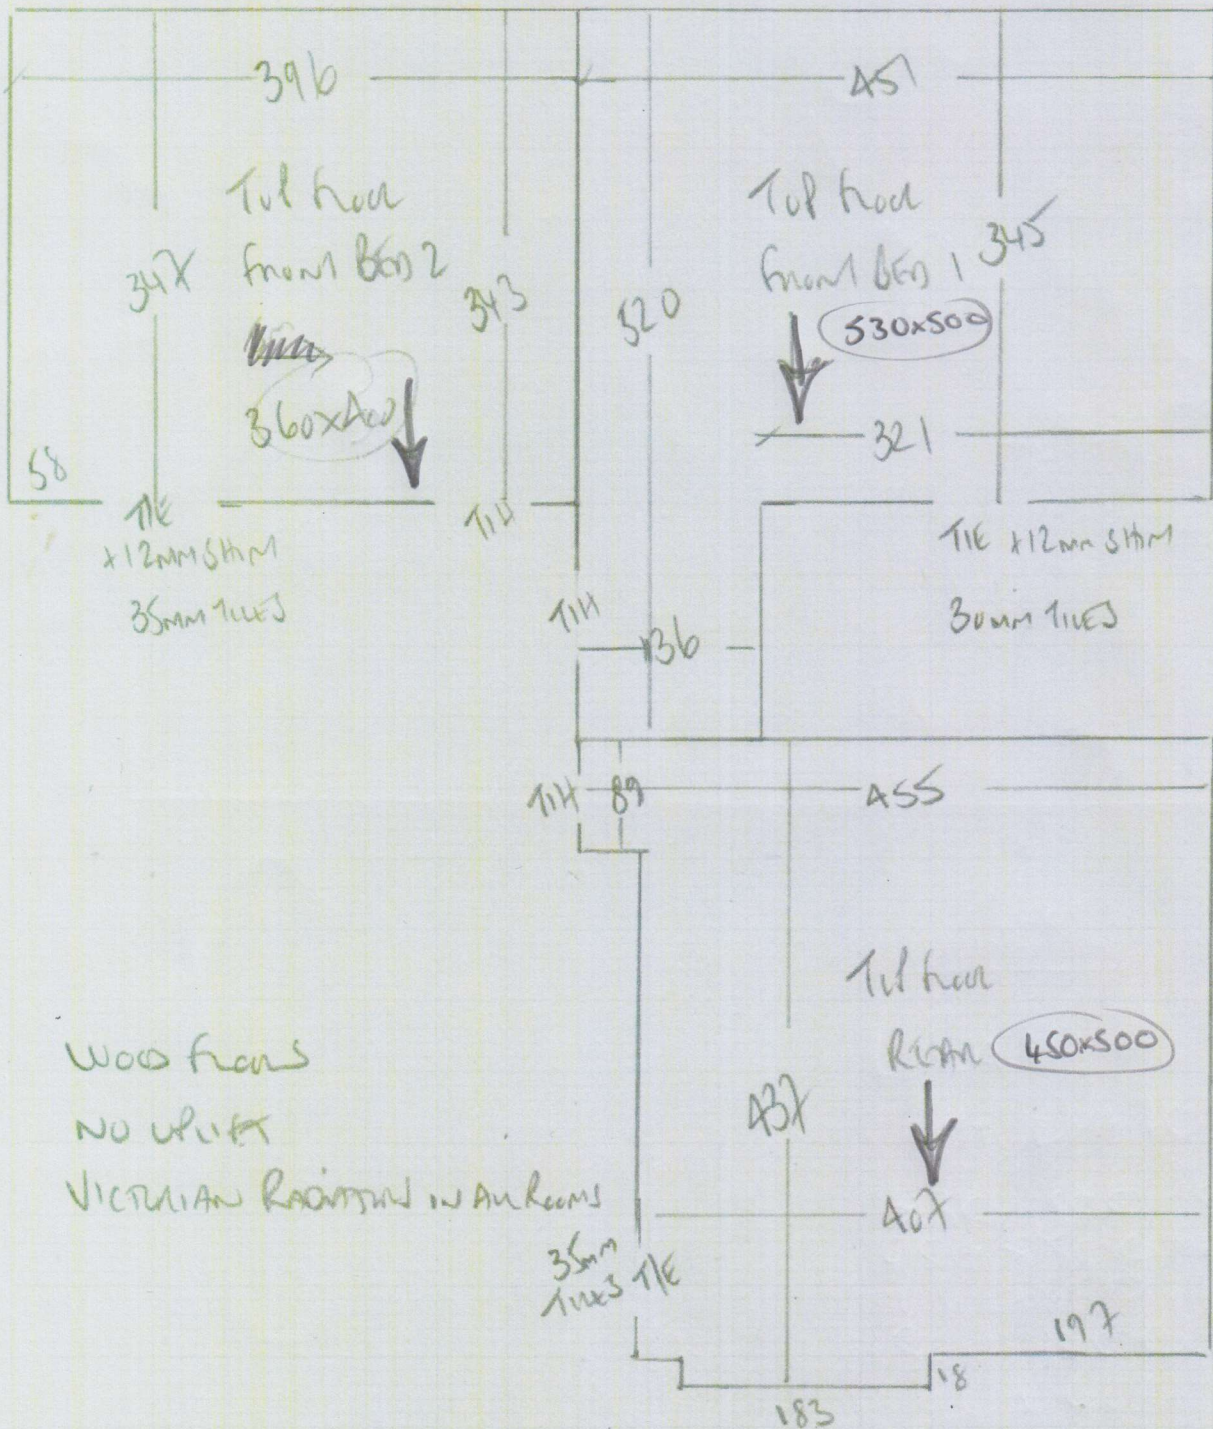 396
451
Top Floor
Front BED 2
347
343
360x400
58
T/E
+12mm SHIM
35mm TILES
T/H
Top Floor
Front BED 1
345
520
530x500
321
T/E +12mm SHIM
30mm TILES
T/H
136
T/H
89
455
Top Floor
REAR
450x500
437
407
WOOD Floors
NO UPLIFT
VICTORIAN RADIATORS IN ALL ROOMS
35mm
TILES T/E
197
18
183